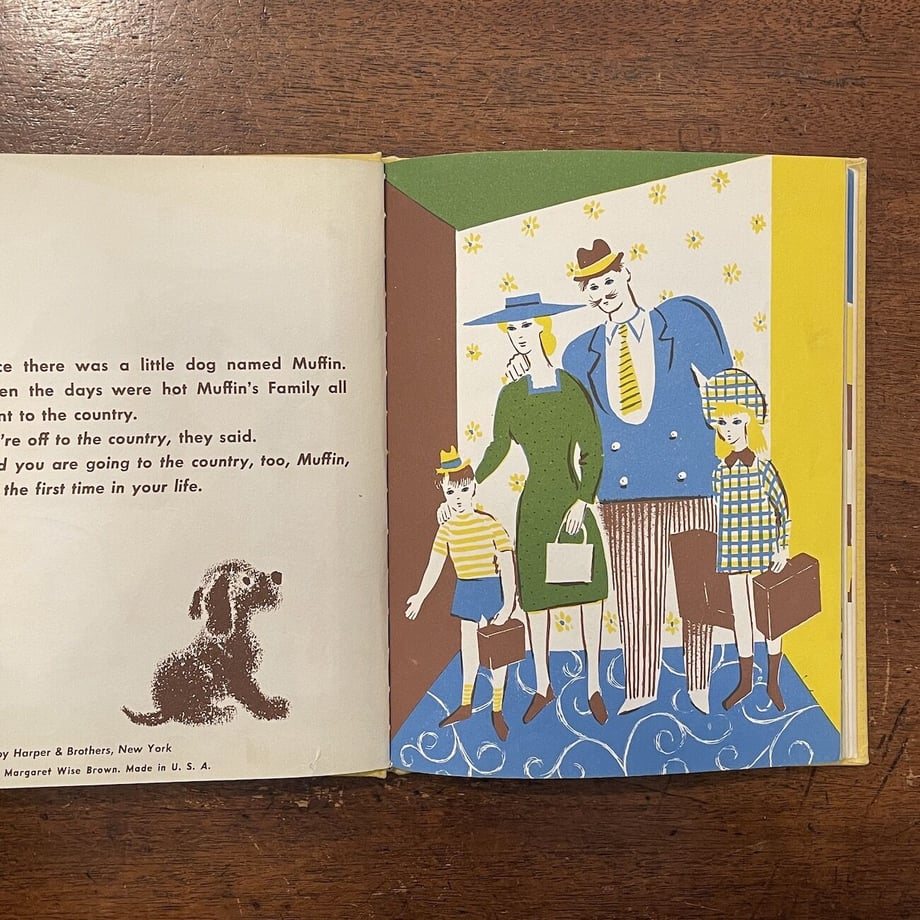 ce there was a little dog named Muffin.
en the days were hot Muffin's Family all
nt to the country.
're off to the country, they said.
d you are going to the country, too, Muffin,
the first time in your life.
by Harper & Brothers, New York
Margaret Wise Brown. Made in U. S. A.